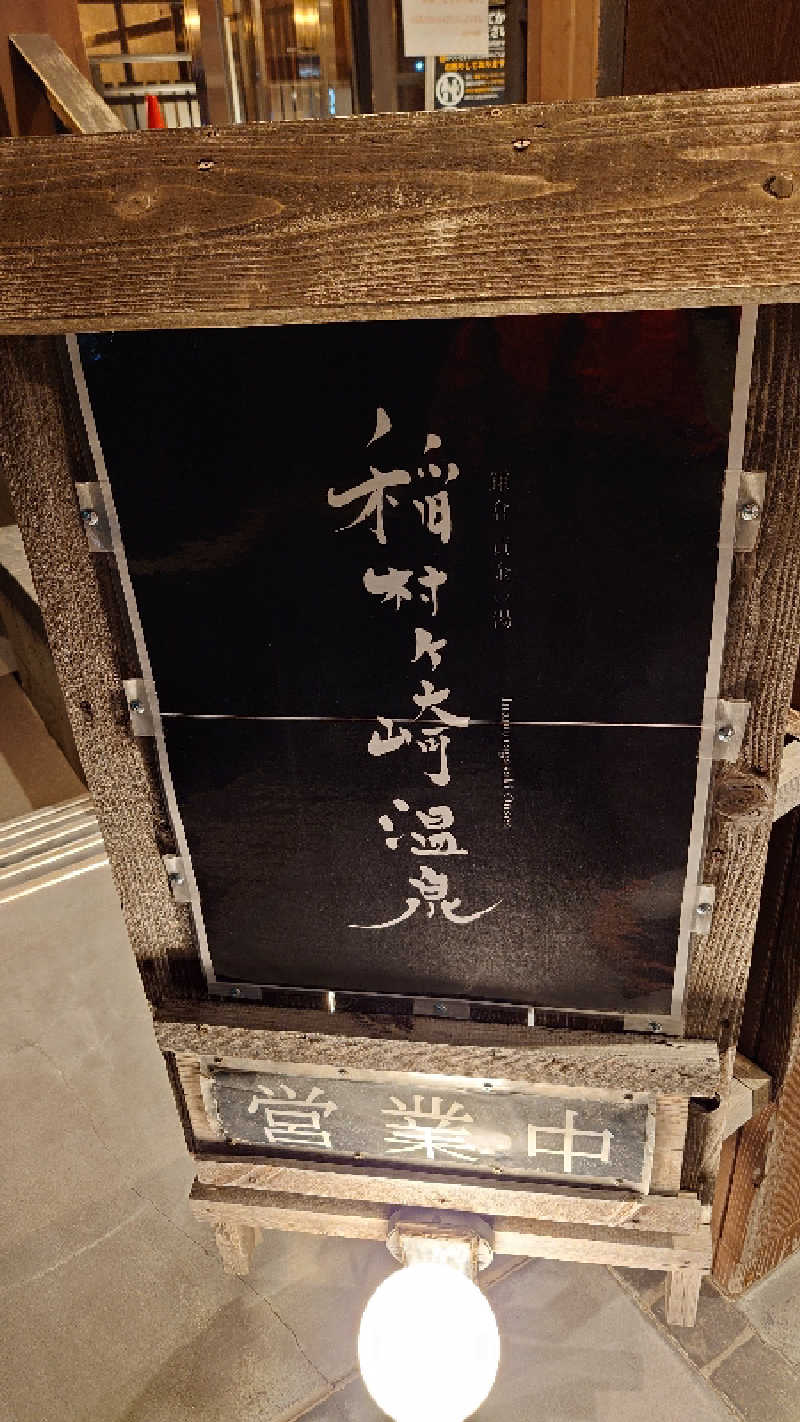 稲村ヶ崎温泉
鎌倉 黄金の湯
Inamuragasaki Onsen
営業中